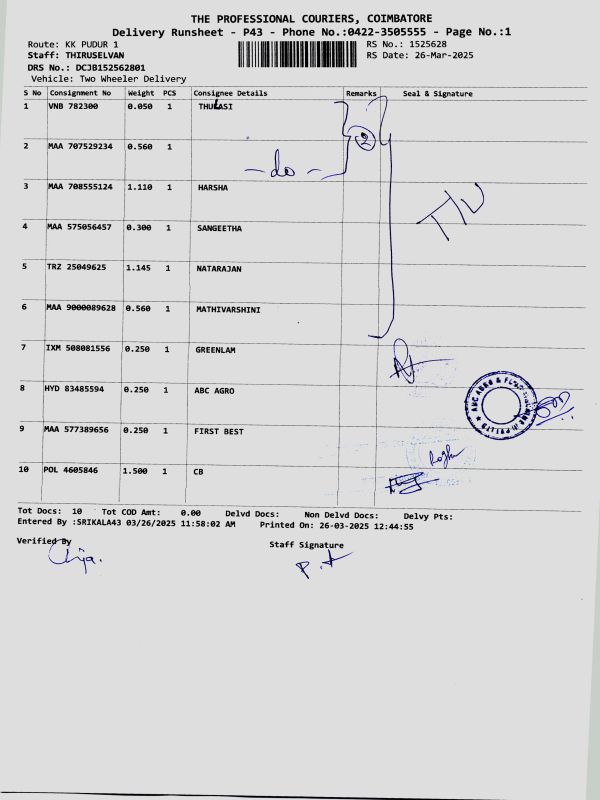 THE PROFESSIONAL COURIERS, COIMBATORE
Delivery Runsheet - P43 - Phone No.:0422-3505555 - Page No.:1
Route: KK PUDUR 1 RS No.: 1525628
Staff: THIRUSELVAN RS Date: 26-Mar-2025
DRS No.: DCJB152562801
Vehicle: Two Wheeler Delivery
S No Consignment No Weight PCS Consignee Details Remarks Seal & Signature
1 VNB 782300 0.050 1 THULASI
2
2 MAA 707529234 0.560 1
-do-
3 MAA 708555124 1.110 1 HARSHA
4 MAA 575056457 0.300 1 SANGEETHA
5 TRZ 25049625 1.145 1 NATARAJAN
6 MAA 9000089628 0.560 1 MATHIVARSHINI
7 IXM 508081556 0.250 1 GREENLAM
8 HYD 83485594 0.250 1 ABC AGRO
9 MAA 577389656 0.250 1 FIRST BEST
10 POL 4605846 1.500 1 CB
Tot Docs: 10 Tot COD Amt: 0.00 Delvd Docs: Non Delvd Docs: Delvy Pts:
Entered By :SRIKALA43 03/26/2025 11:58:02 AM Printed On: 26-03-2025 12:44:55
Verified By Staff Signature